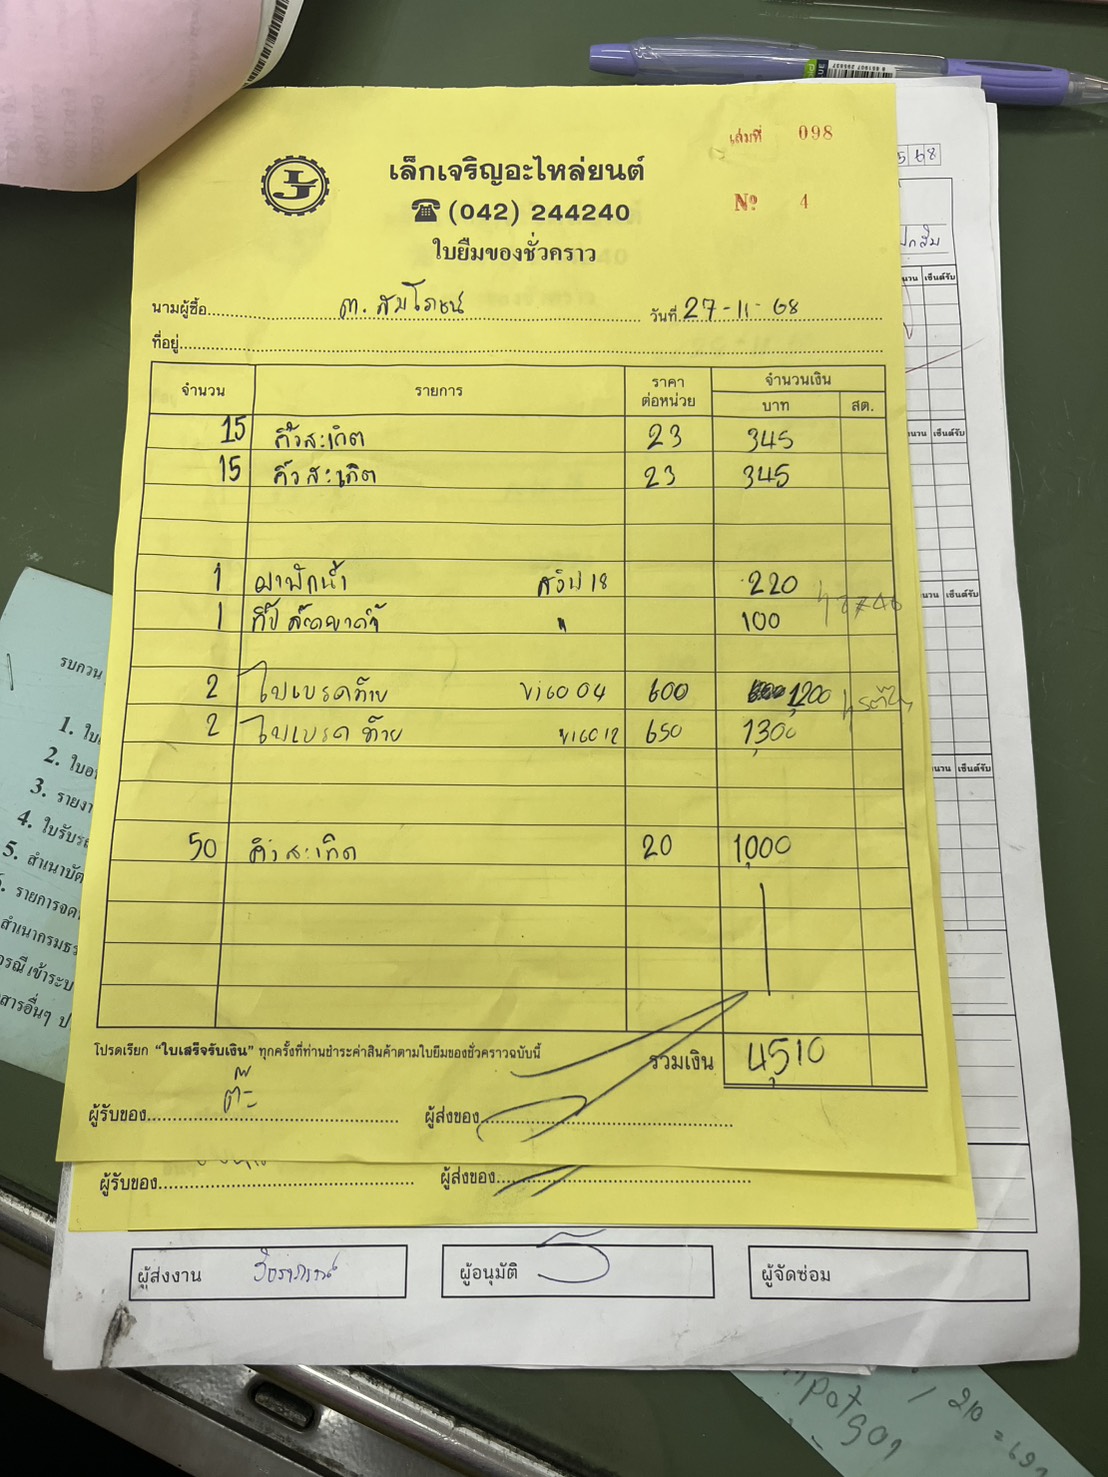 เล่มที่ 098
เล็กเจริญอะไหล่ยนต์
LJ
☎ (042) 244240
Nº 4
ใบยืมของชั่วคราว
นามผู้ซื้อ ต. สัมโภชน์ วันที่ 27-11-68
ที่อยู่
จำนวน รายการ ราคาต่อหน่วย จำนวนเงิน
บาท สต.
15 คิ้วสะเกิต 23 345
15 คิ้วสะเกิต 23 345
1 ฝาพักน้ำ 18 220
1 100
2 ใบเบรคท้าย Vigo 04 600 1,200
2 ใบเบรคท้าย Vigo 12 650 1,300
50 คิ้วสะเกิด 20 1,000
โปรดเรียก "ใบเสร็จรับเงิน" ทุกครั้งที่ท่านชำระค่าสินค้าตามใบยืมของชั่วคราวฉบับนี้
รวมเงิน 4,510
ผู้รับของ ต๊ะ ผู้ส่งของ
ผู้รับของ ผู้ส่งของ
ผู้ส่งงาน ผู้อนุมัติ ผู้จัดซ่อม
รบกวน
1. ใบ
2. ใบ
3. ราย
4. ใบรับ
5. สำเนาบัต
รายการจด
สำเนากรมธร
กรณีเข้าระบ
สารอื่นๆ ป
68
เซ็นต์รับ
เซ็นต์รับ
เซ็นต์รับ
เซ็นต์รับ
210 =